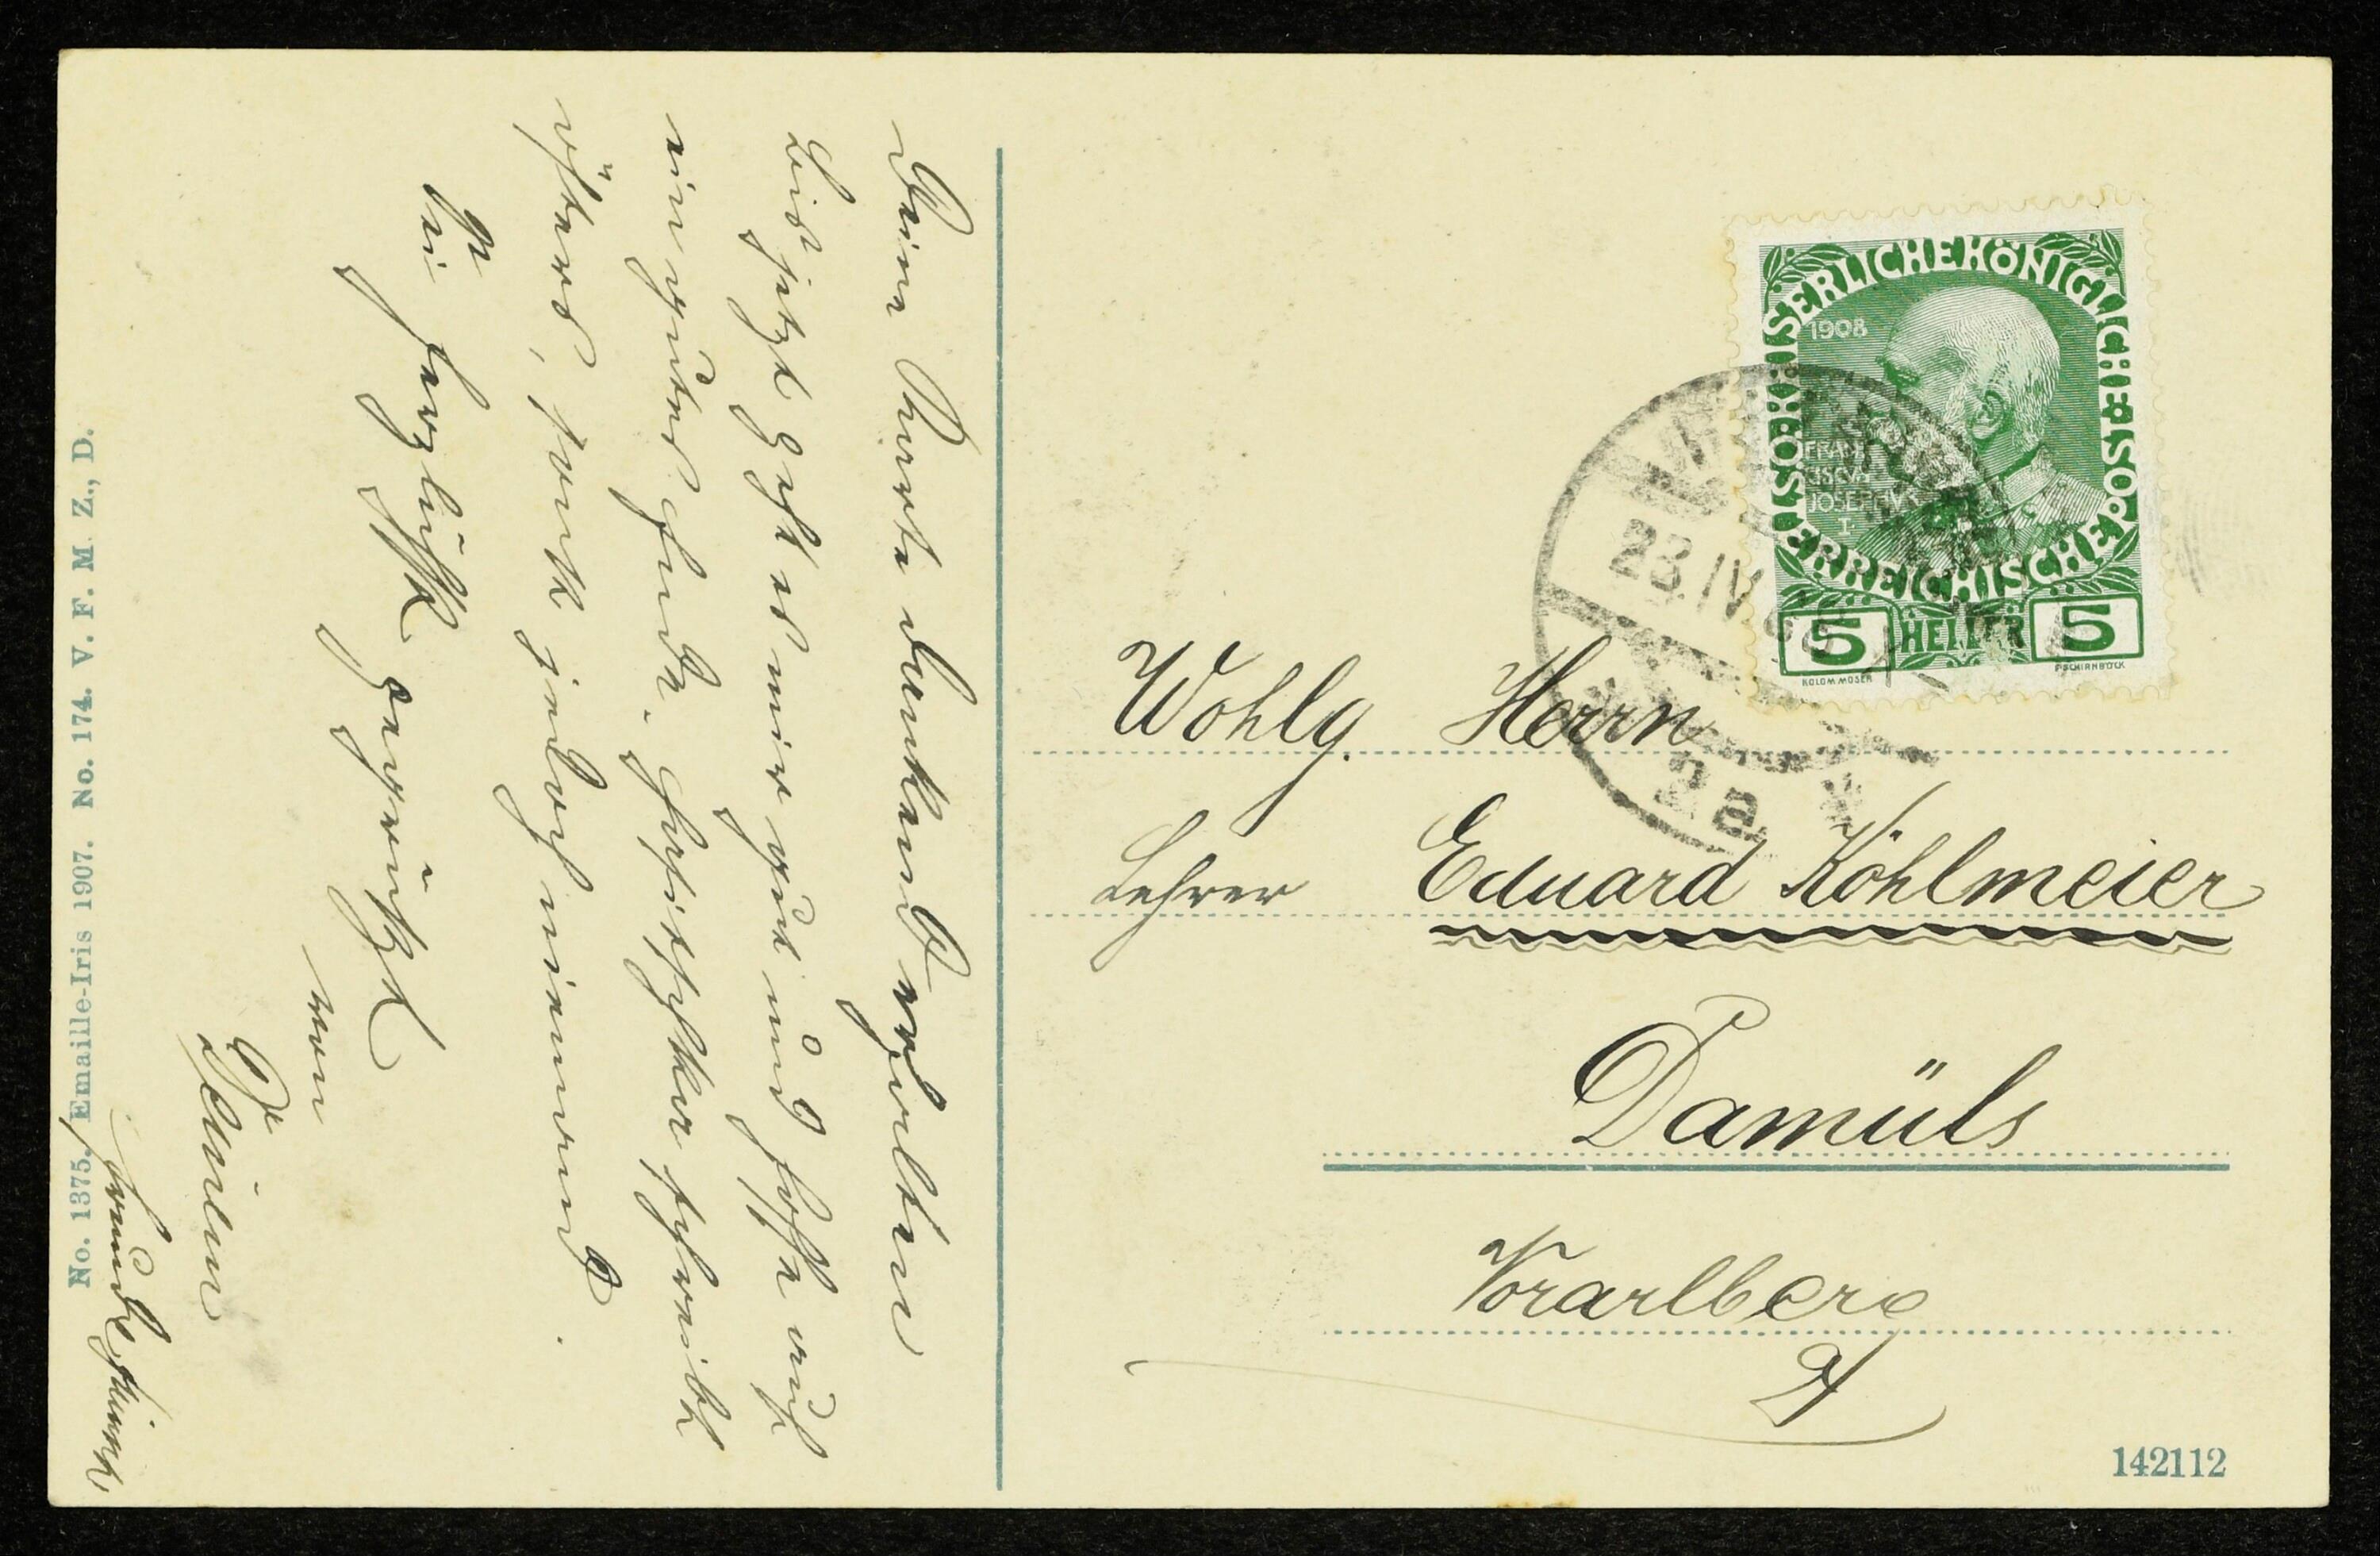 Deine Karte dankend erhalten
Bis jetzt geht es mir gut und hoffe auch
ein gutes Ende. Sepp schreibt
öfters, sonst jedoch niemand.
Sei herzlichst gegrüßt
von
Deinem
Freunde
No. 1375. Emaille-Iris 1907. No. 174. V. F. M. Z., D.
KAISERLICHE KÖNIGLICHE ÖSTERREICHISCHE POST
1908
FRAN
CISCVS
JOSEPHVS
I.
5 HELLER 5
KOLOM. MOSER
F. SCHIRNBÖCK
23. IV.
2a
Wohlg. Herrn
Lehrer Eduard Köhlmeier
Damüls
Vorarlberg
142112